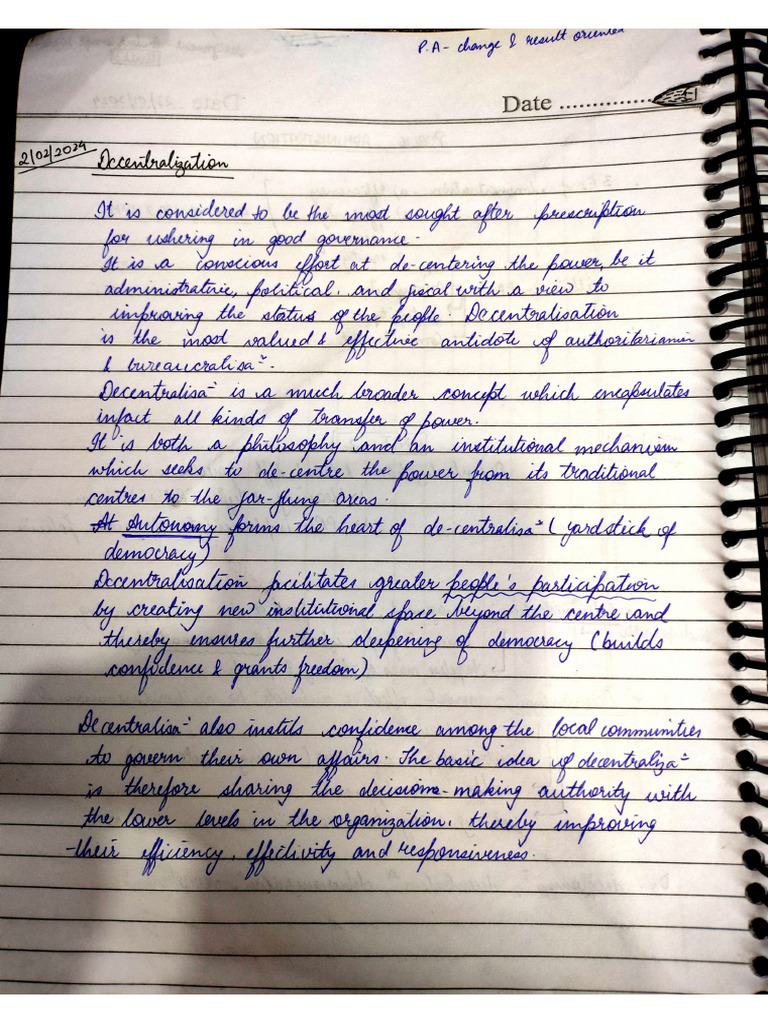 P.A- change & result oriented
Date ..............
2/02/2024
Decentralization
It is considered to be the most sought after prescription
for ushering in good governance.
It is a conscious effort at de-centering the power, be it
administrative, political, and fiscal with a view to
improving the status of the people. Decentralisation
is the most valued & effective antidote of authoritarianism
& bureaucralisaⁿ.
Decentralisaⁿ is a much broader concept which encapsulates
infact all kinds of transfer of power.
It is both a philosophy and an institutional mechanism
which seeks to de-centre the power from its traditional
centres to the far-flung areas.
Autonomy forms the heart of de-centralisaⁿ (yardstick of
democracy)
Decentralisation facilitates greater people's participation
by creating new institutional space beyond the centre and
thereby ensures further deepening of democracy (builds
confidence & grants freedom)
Decentralisaⁿ also instils confidence among the local communities
to govern their own affairs. The basic idea of decentralizaⁿ
is therefore sharing the decisions-making authority with
the lower levels in the organization, thereby improving
their efficiency, effectivity and responsiveness.